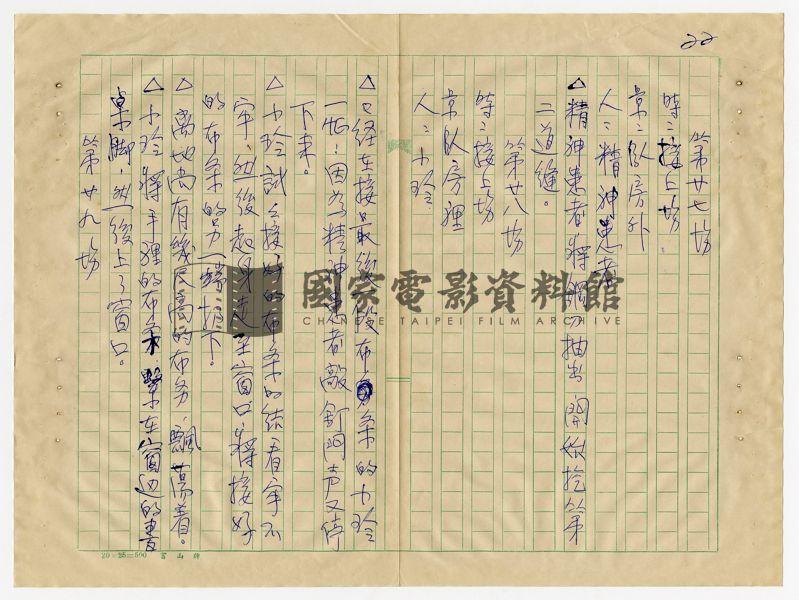 22
第廿七場
時：接上場
景：臥房外
人：精神患者
△精神患者將鋼勺抽出，開始挖第
二道縫。
第廿八場
時：接上場
景：臥房裡
人：小玲
△已經在接最後一段布条的小玲
一怔，因為精神患者敲釘門声又停
下來。
△小玲試了接好的布条的結看牢不
牢，然後起身走至窗口，將接好
的布条的另一端抛下。
△離地尚有幾尺高的布条，飄蕩着。
△小玲將手裡的布条，緊在窗边的書
桌脚，然後上了窗口。
第廿九場
國家電影資料館
CHINESE TAIPEI FILM ARCHIVE
20×25=500